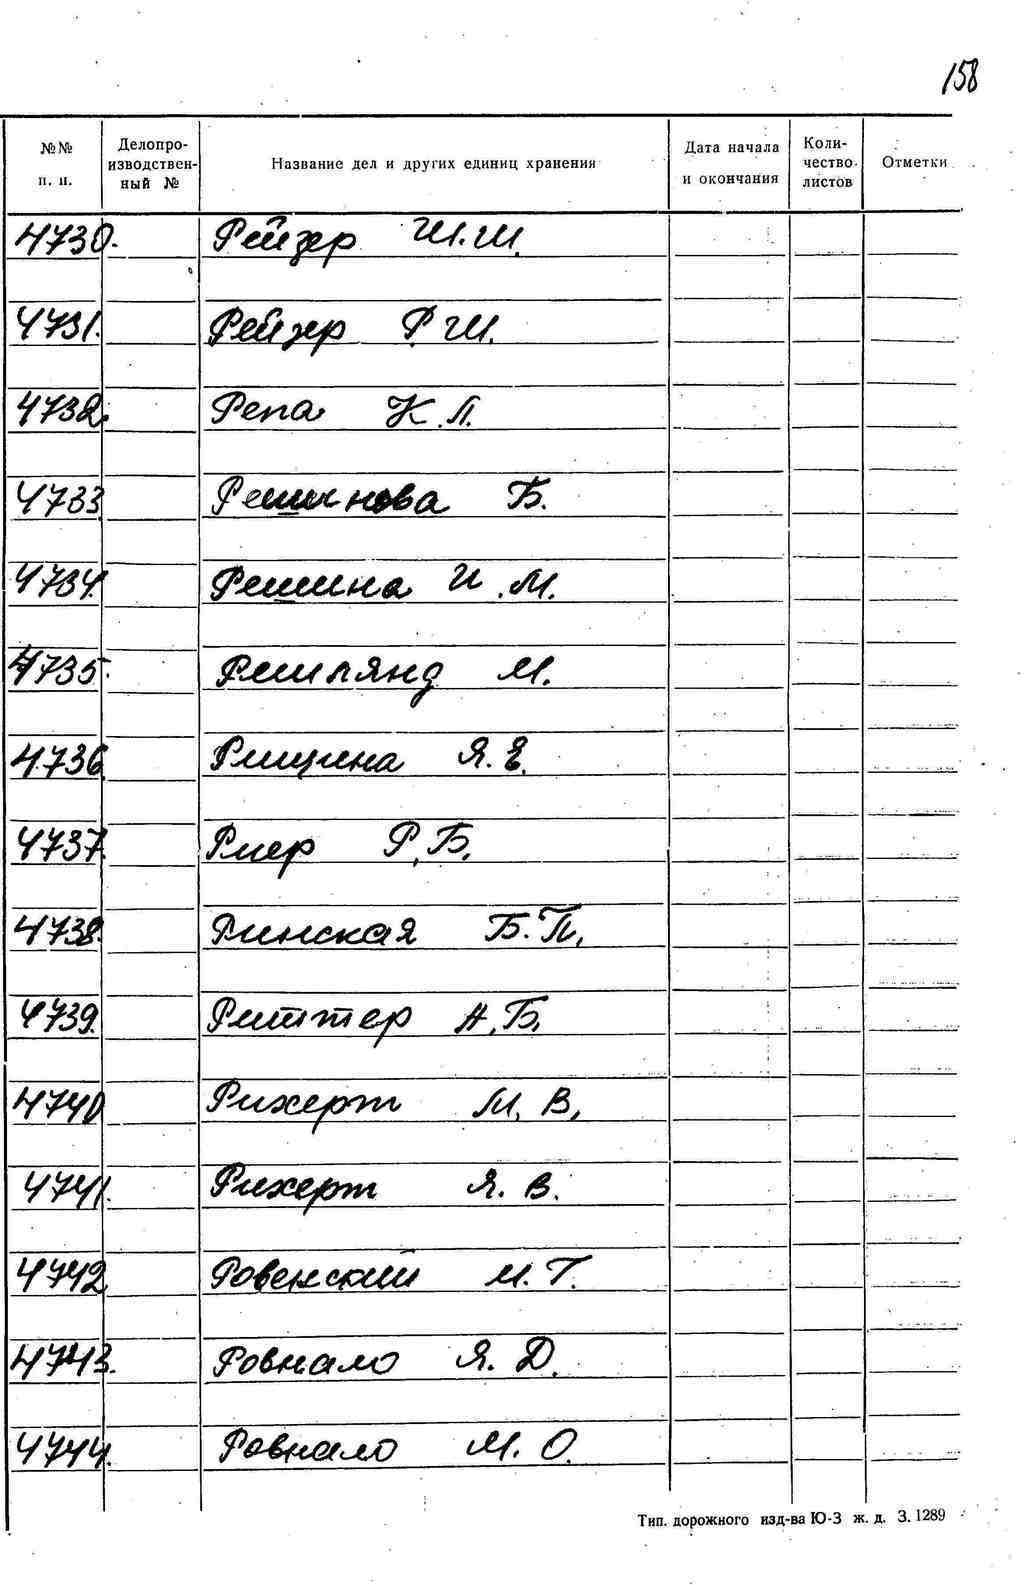 158
№№ п. п. Делопроизводствен-ный № Название дел и других единиц хранения Дата начала и окончания Коли-чество листов Отметки
4730. Рейзер Ш.Ш.
4731. Рейзер Р.Ш.
4732. Репа К.П.
4733 Решинова Б.
4734. Решина И.М.
4735. Решлянд М.
4736 Рищина Я.Е.
4737. Риер Р.Б.
4738. Ринская Б.П.
4739. Риттер А.Б.
4740 Рихерт М.В.
4741. Рихерт Я.В.
4742 Ровенский М.Г.
4743. Ровнало Я.Д.
4744. Ровнало М.О.
Тип. дорожного изд-ва Ю-З ж. д. З. 1289